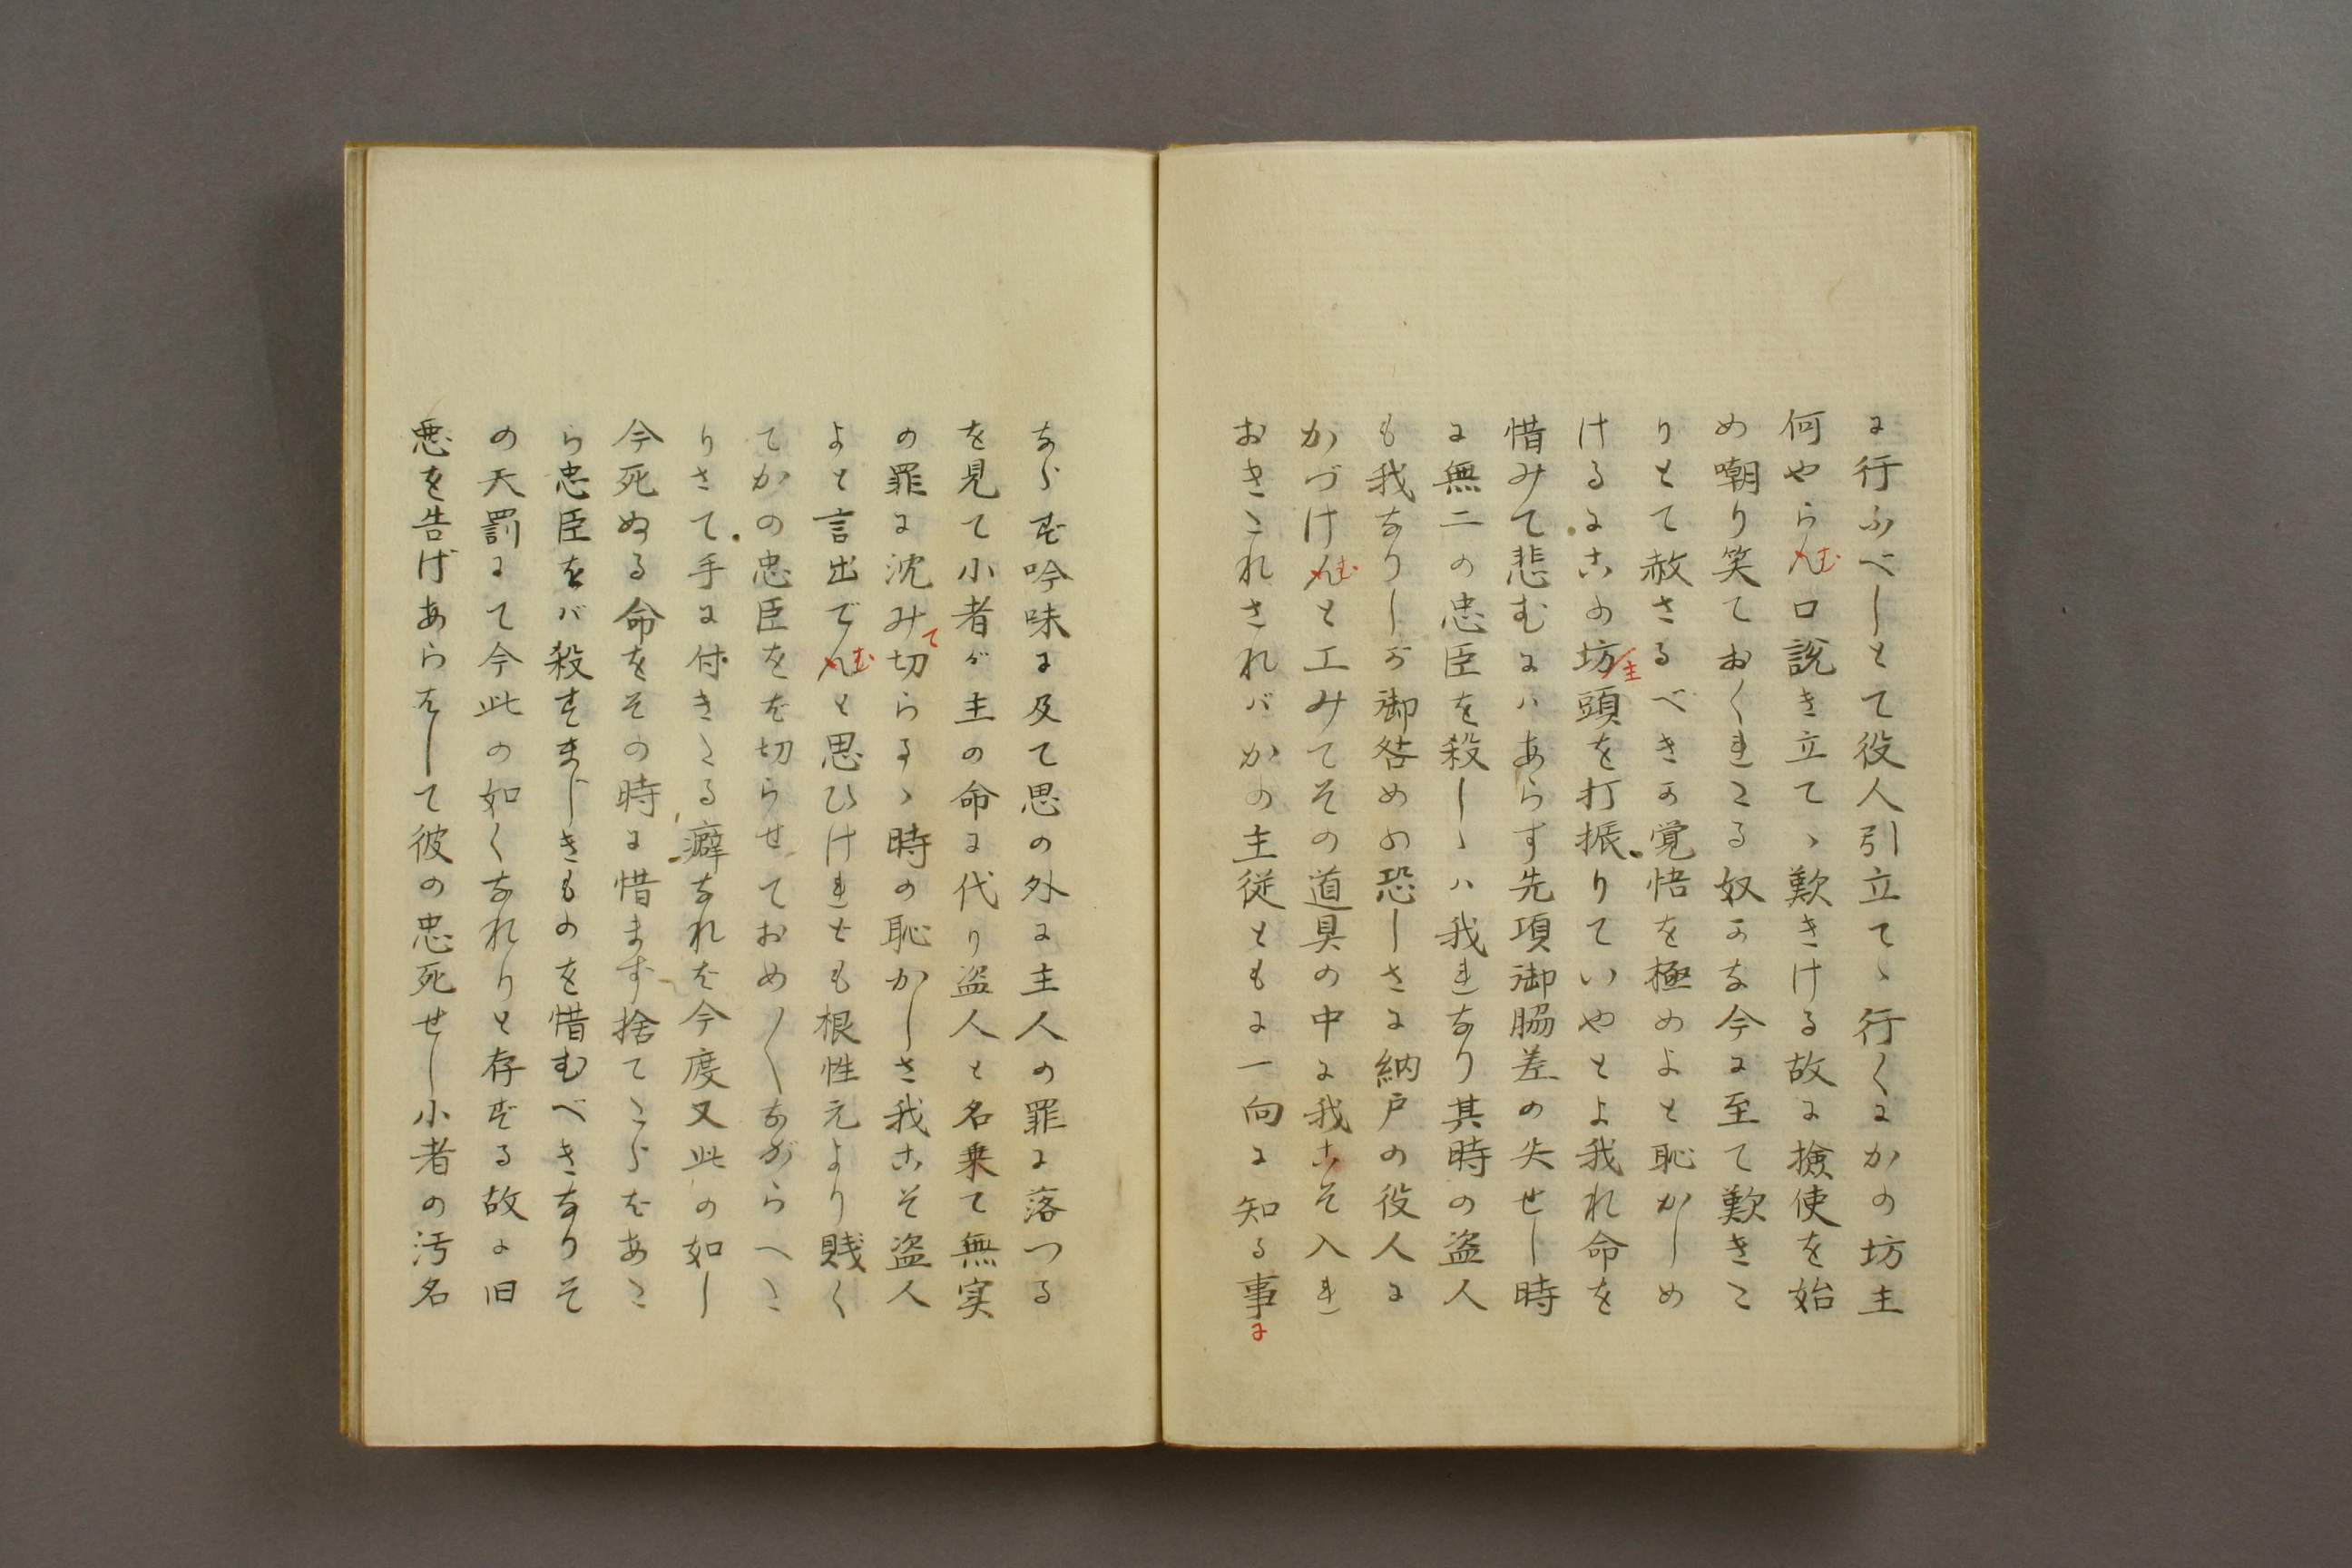 に行ふべしとて役人引立てゝ行くにかの坊主
何やらん口説き立てゝ歎きける故に撿使を始
め嘲り笑ておくれたる奴かな今に至て歎きた
りとて赦さるべきか覚悟を極めよと恥かしめ
けるにこの坊主頭を打振りていやとよ我れ命を
惜みて悲むにハあらす先項御脇差の失せし時
に無二の忠臣を殺しゝハ我れなり其時の盗人
も我なりしが御咎めの恐しさに納戸の役人に
かづけむと工みてその道具の中に我こそ入れ
おきたれされバかの主従ともに一向に知る事に
ならず吟味に及て思の外に主人の罪に落つる
を見て小者が主の命に代り盗人と名乗て無実
の罪に沈みて切らるゝ時の恥かしさ我こそ盗人
よと言出でむと思ひけれども根性元より賎く
てかの忠臣をを切らせておめ〳〵ながらへた
りさて手に付きたる癖なれを今度又此の如し
今死ぬる命をその時に惜まず捨てたらをあた
ら忠臣をバ殺すまじきものを惜むべきなりそ
の天罰にて今此の如くなれりと存ずる故に旧
悪を告げあらをして彼の忠死せし小者の汚名